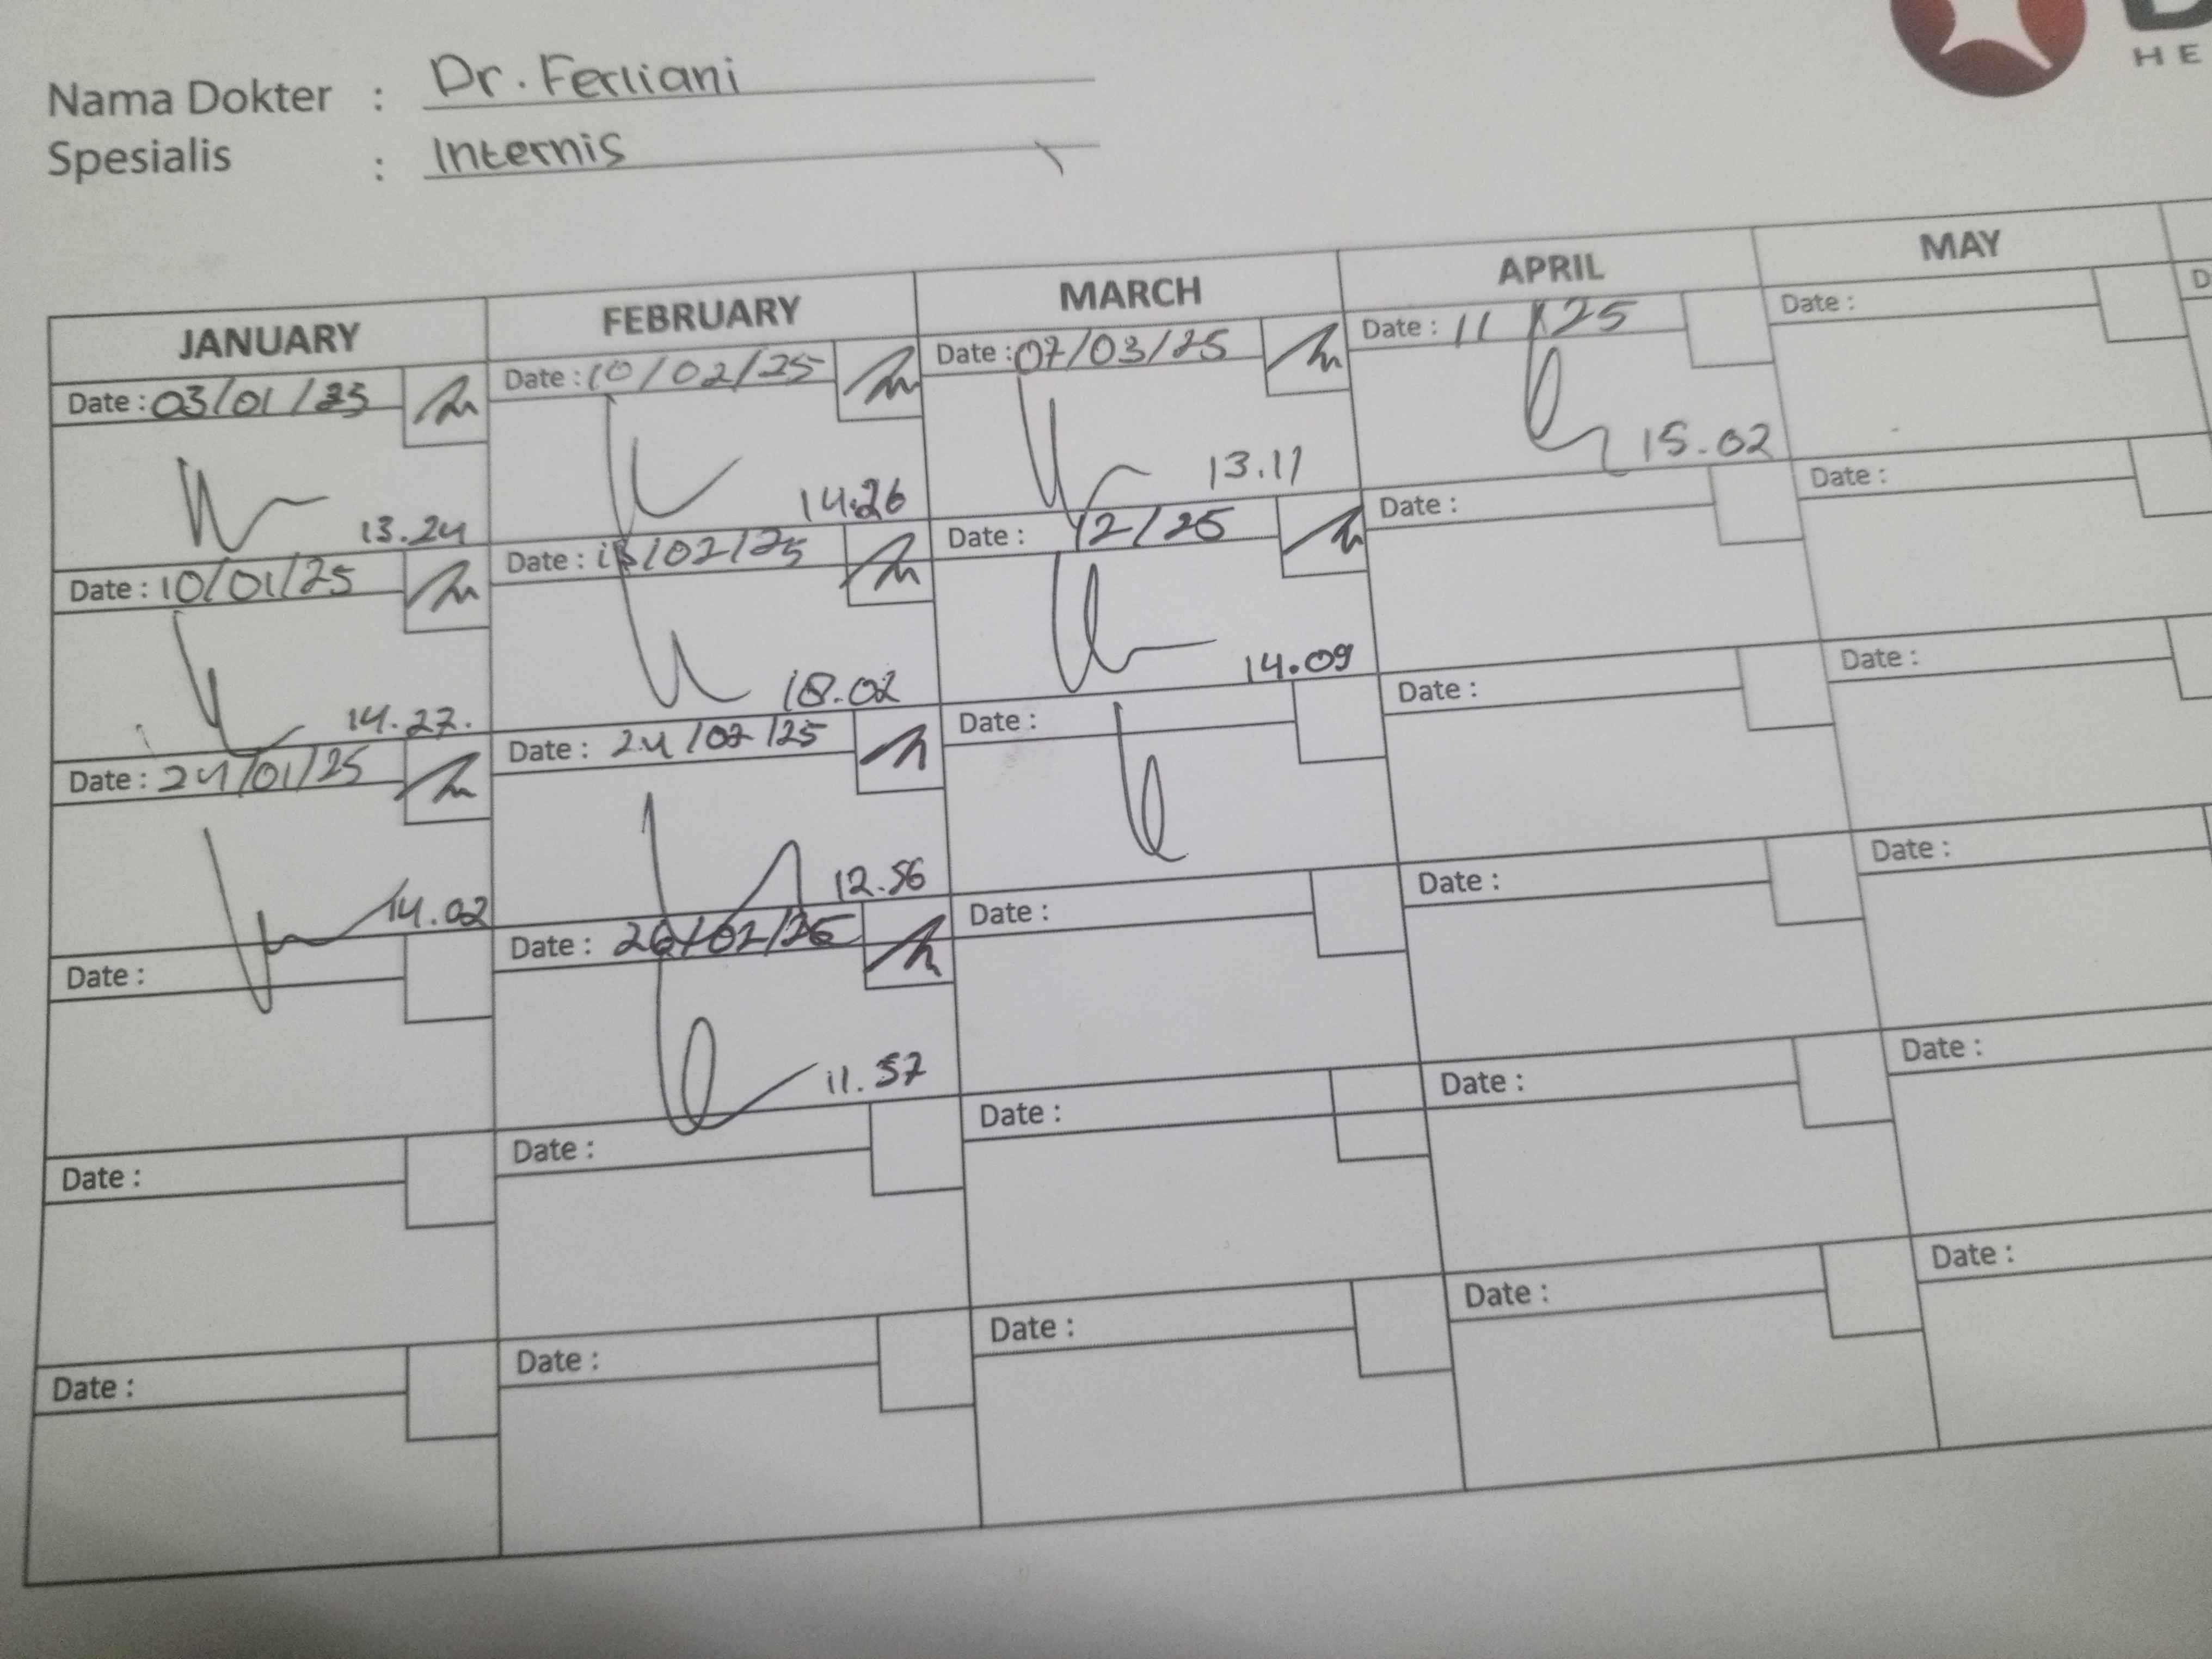 Nama Dokter : Dr. Ferliani
Spesialis : Internis
HE
JANUARY FEBRUARY MARCH APRIL MAY
Date : 03/01/25 Date : 10/02/25 Date : 07/03/25 Date : 11 /25 Date :
13.24 14.26 13.11 15.02
Date : 10/01/25 Date : /02/25 Date : 12/25 Date : Date :
14.27. 18.02 14.09
Date : 24/01/25 Date : 24/02/25 Date : Date : Date :
14.02 12.56
Date : Date : 26/02/25 Date : Date : Date :
11.57
Date : Date : Date : Date : Date :
Date : Date : Date : Date : Date :